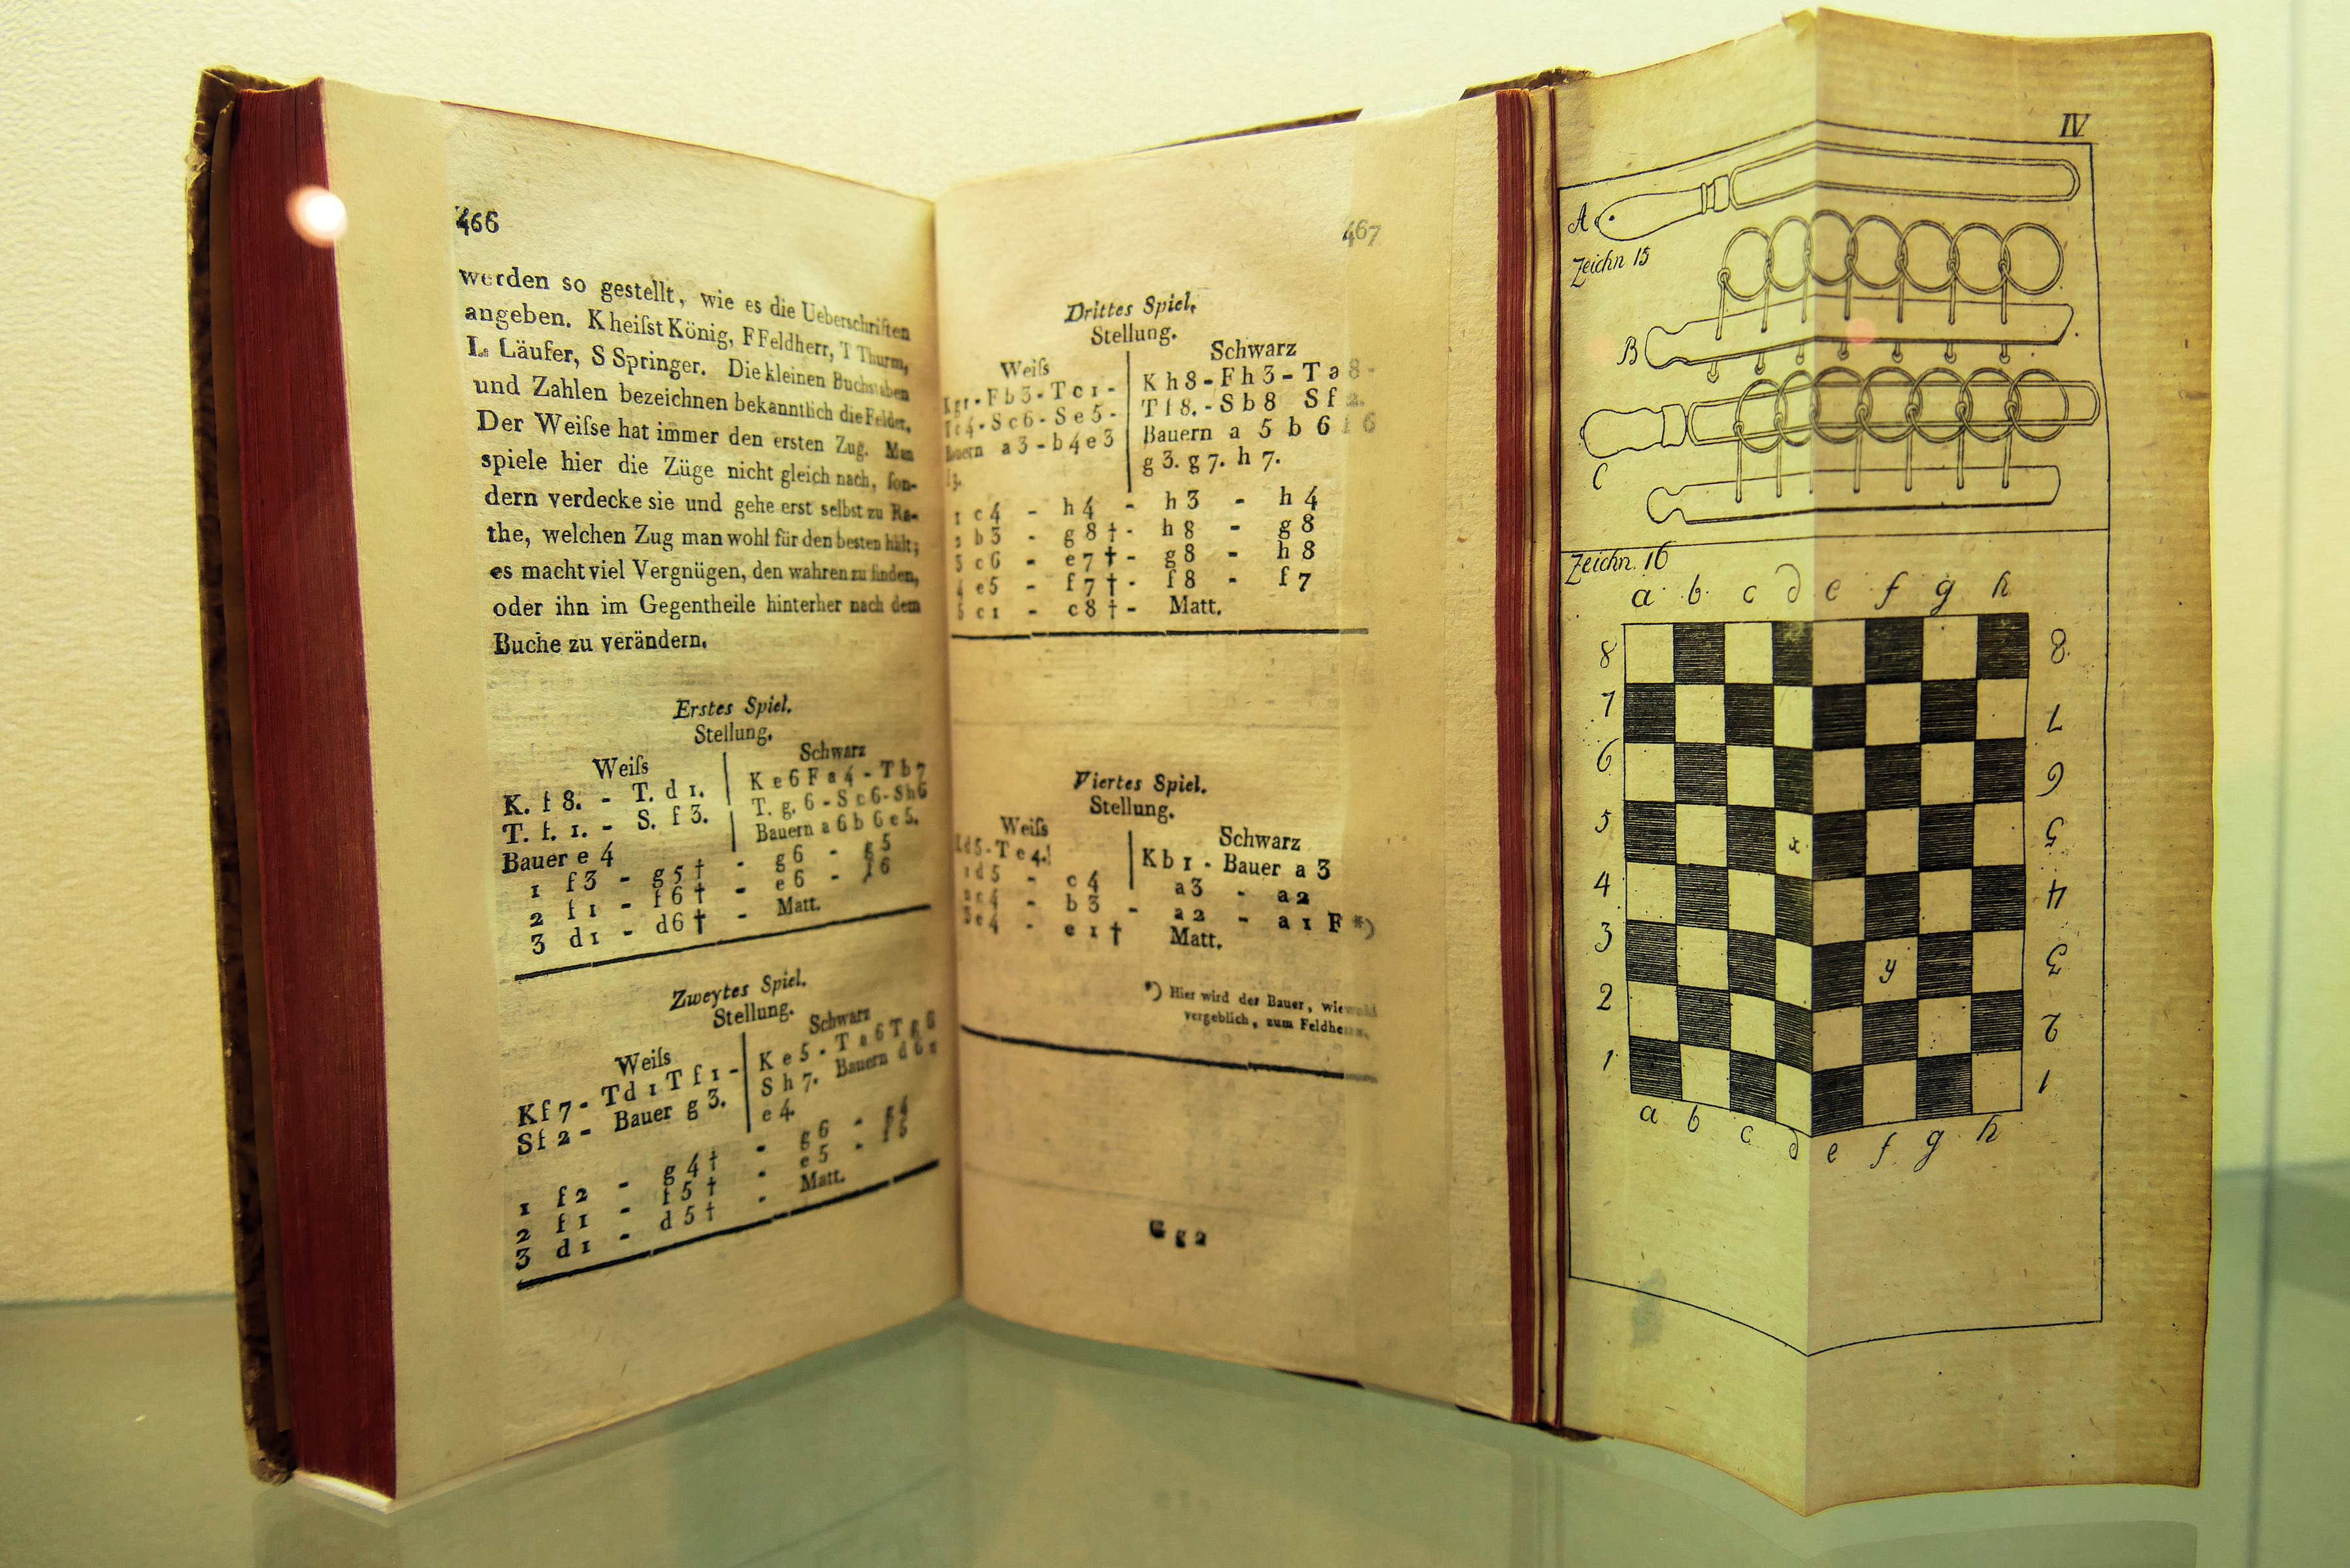 466
werden so gestellt, wie es die Ueberschriften
angeben. K heiſst König, F Feldherr, T Thurm,
L Läufer, S Springer. Die kleinen Buchstaben
und Zahlen bezeichnen bekanntlich die Felder.
Der Weiſse hat immer den ersten Zug. Man
spiele hier die Züge nicht gleich nach, ſon-
dern verdecke sie und gehe erst selbst zu Ra-
the, welchen Zug man wohl für den besten hält;
es macht viel Vergnügen, den wahren zu finden,
oder ihn im Gegentheile hinterher nach dem
Buche zu verändern.
Erstes Spiel.
Stellung.
Weiſs
K. f 8. - T. d 1.
T. f. 1. - S. f 3.
Bauer e 4
Schwarz
K e 6 F a 4 - T b 7
T. g. 6 - S c 6 - S h 6
Bauern a 6 b 6 e 5.
1 f 3 - g 5 † - g 6 - g 5
2 f 1 - f 6 † - e 6 - f 6
3 d 1 - d 6 † - Matt.
Zweytes Spiel.
Stellung.
Weiſs
K f 7 - T d 1 T f 1 -
S f 2 - Bauer g 3.
Schwarz
K e 5 - T a 6 T g 6
S h 7. Bauern d 6
e 4.
1 f 2 - g 4 † - g 6 - g 4
2 f 1 - f 5 † - e 5 - f 5
3 d 1 - d 5 † - Matt.
467
Drittes Spiel.
Stellung.
Weiſs
K g 1 - F b 3 - T c 1 -
T c 4 - S c 6 - S e 5 -
Bauern a 3 - b 4 e 3
f 3.
Schwarz
K h 8 - F h 3 - T a 8 -
T f 8. - S b 8 S f 2.
Bauern a 5 b 6 f 6
g 3. g 7. h 7.
1 c 4 - h 4 - h 3 - h 4
2 b 3 - g 8 † - h 8 - g 8
3 c 6 - e 7 † - g 8 - h 8
4 e 5 - f 7 † - f 8 - f 7
5 c 1 - c 8 † - Matt.
Viertes Spiel.
Stellung.
Weiſs
K d 5 - T e 4.
Schwarz
K b 1 - Bauer a 3
1 d 5 - c 4 a 3 - a 2
2 c 4 - b 3 - a 2 - a 1 F *)
3 e 4 - e 1 † Matt.
*) Hier wird der Bauer, wiewohl
vergeblich, zum Feldherrn.
G g 2
IV
A
Zeichn 15
B
C
Zeichn. 16
a b c d e f g h
8 8
7 7
6 6
5 x 5
4 4
3 y 3
2 2
1 1
a b c d e f g h